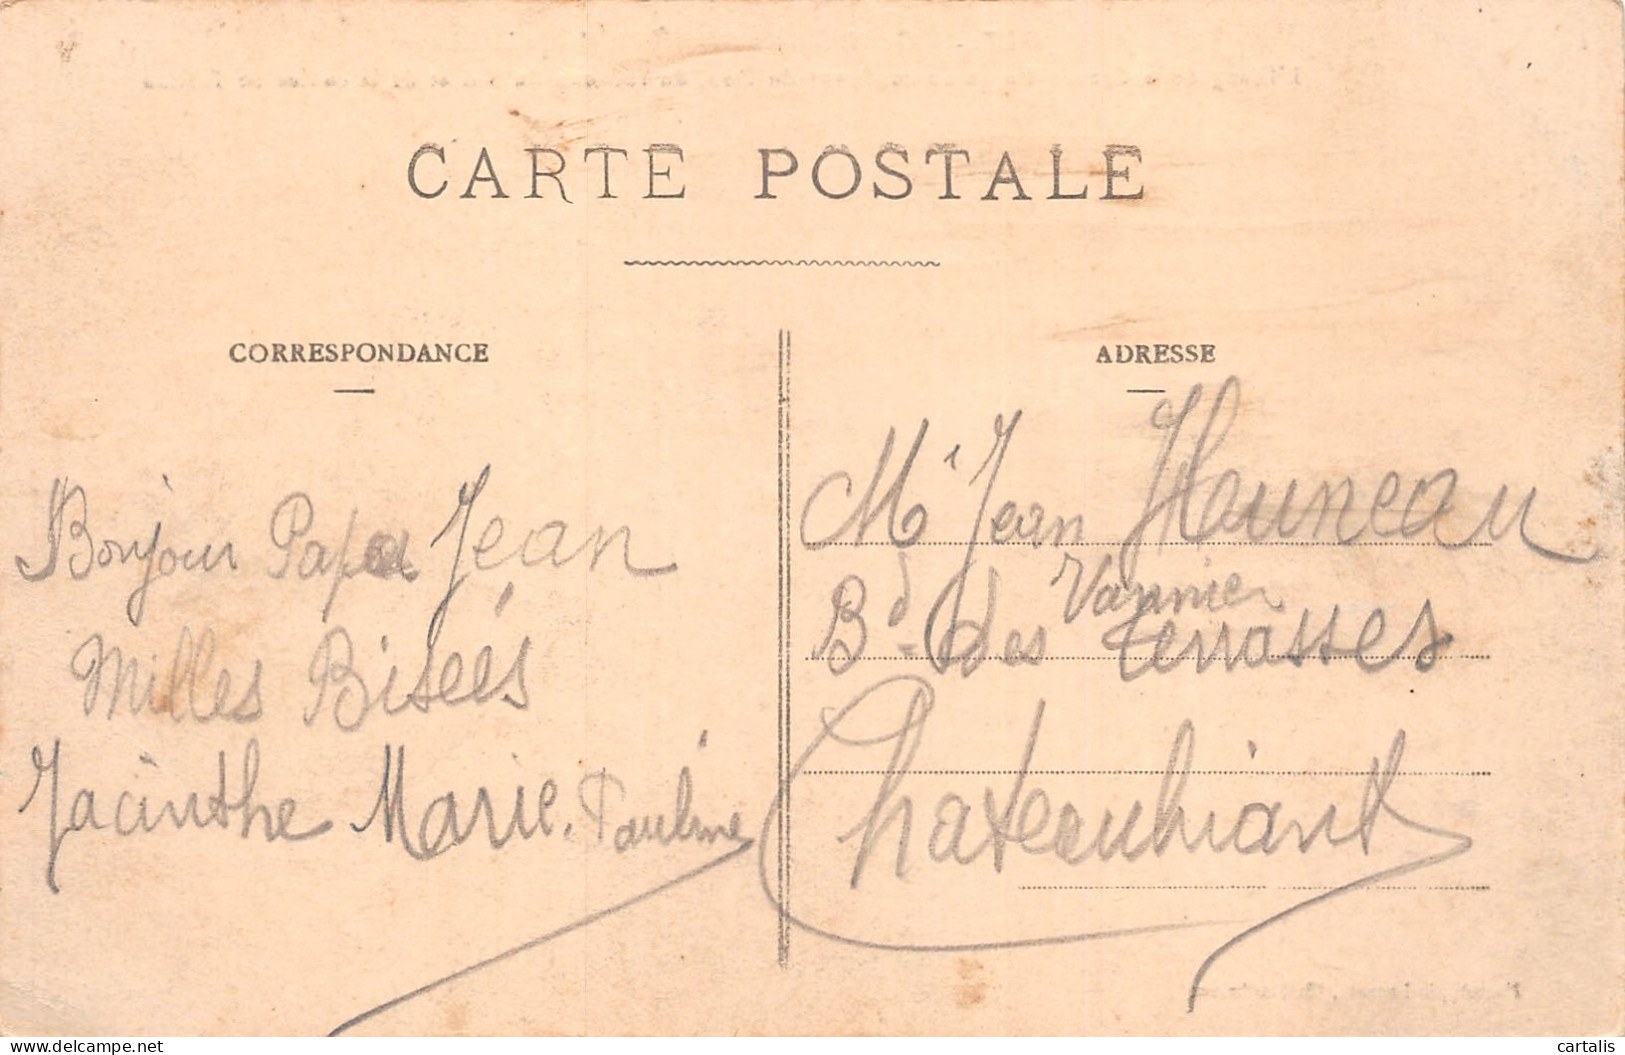 CARTE POSTALE
CORRESPONDANCE
Bonjour Papa Jean
Milles Biseés
Jacinthe Marie. Pauline
ADRESSE
Mr Jean Houneau
Vannier
Bd - des terrasses
Chateaubriant
delcampe.net
cartalis